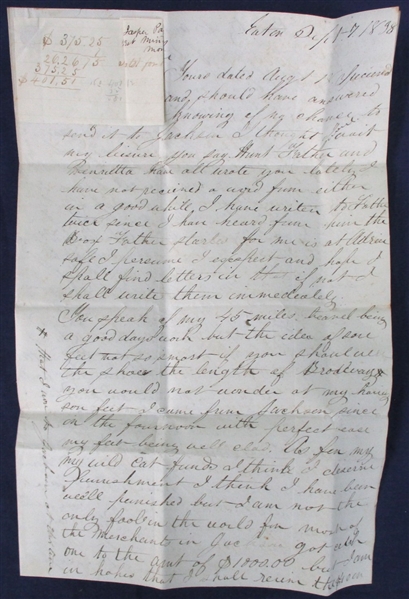 Eaton Sept 7 1838
$ 375.25
375.25
not
Yours dated Augst 12 Received
and should have answered
knowing of no chance to
send it to Jackson I thought I wait
my leisure you say Aunt Father and
Henrietta have all wrote you lately I
have not received a word from either
in a good while, I have writen to Father
twice since I have heard from him the
Box Father started for me is at Adrian
safe I presume I expect and hope I
shall find letters in that if not I
shall write them immediately
You speak of my 45 miles travel being
a good days work but the idea of sore
feet not so smart if you should
the shoes the length of Broadway
you would not wonder at my having
sore feet I came from Jackson since
in the forenoon with perfect ease
my feet being well clad. As for my
my wild cat funds I think I deserve
Punishment I think I have been
well punished but I am not the
only fool in the world for most of
the Merchants in Jackson got with
one to the amt of $1000.00 but I am
in hopes that I shall